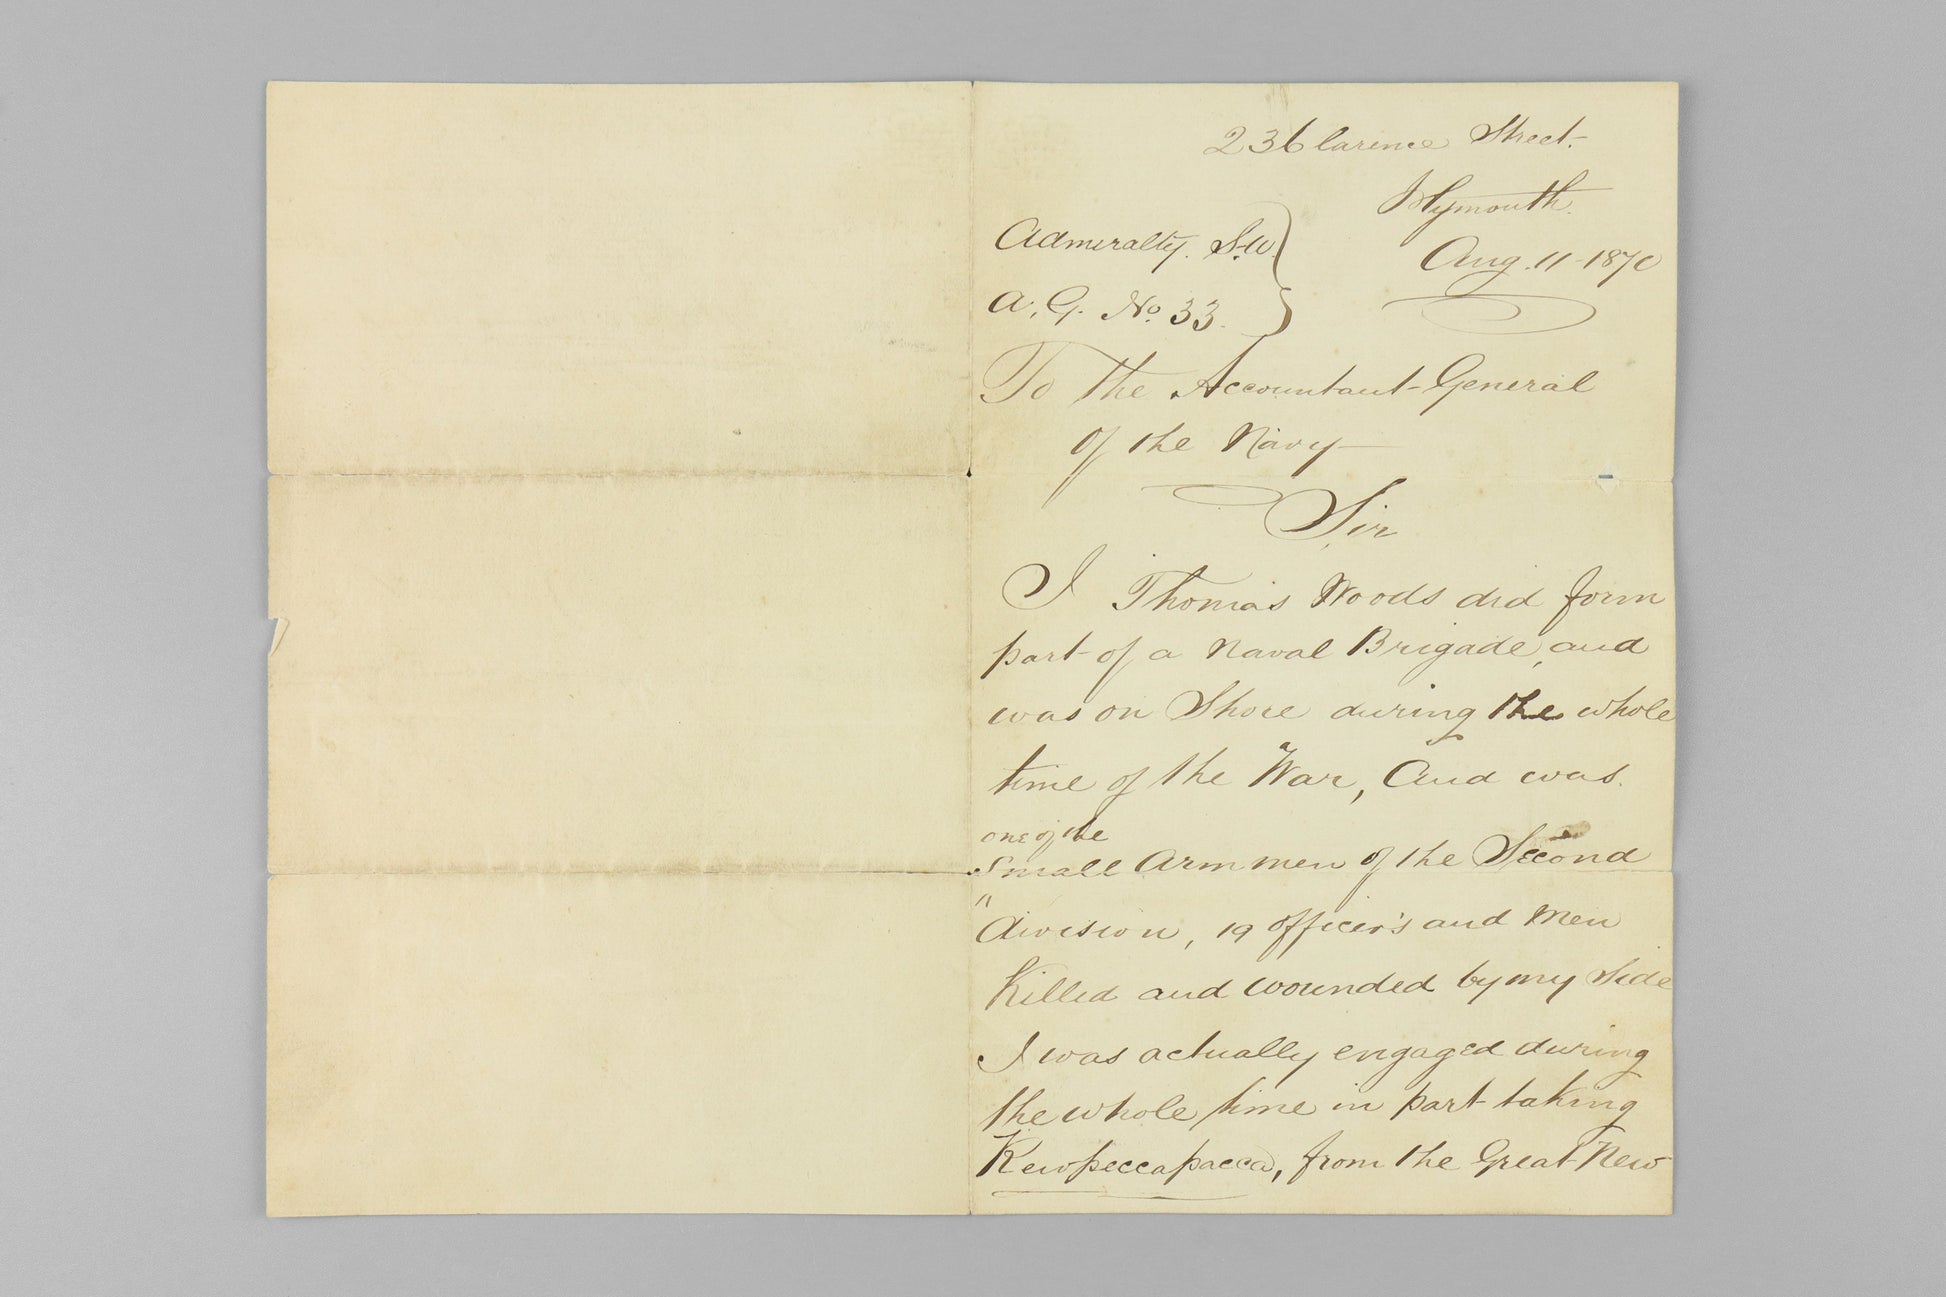 23 Clarence Street.
Plymouth.
Aug. 11-1870
Admiralty. S.W.
A. G. No. 33.
To the Accountant-General
of the Navy—
Sir
I Thomas Woods did form
part of a Naval Brigade, and
was on Shore during the whole
time of the War, And was.
one of the
Small Arm men of the Second
"division, 19 officer's and Men
Killed and wounded by my Side
I was actually engaged during
the whole time in part taking
Kewpeccapacca, from the Great New